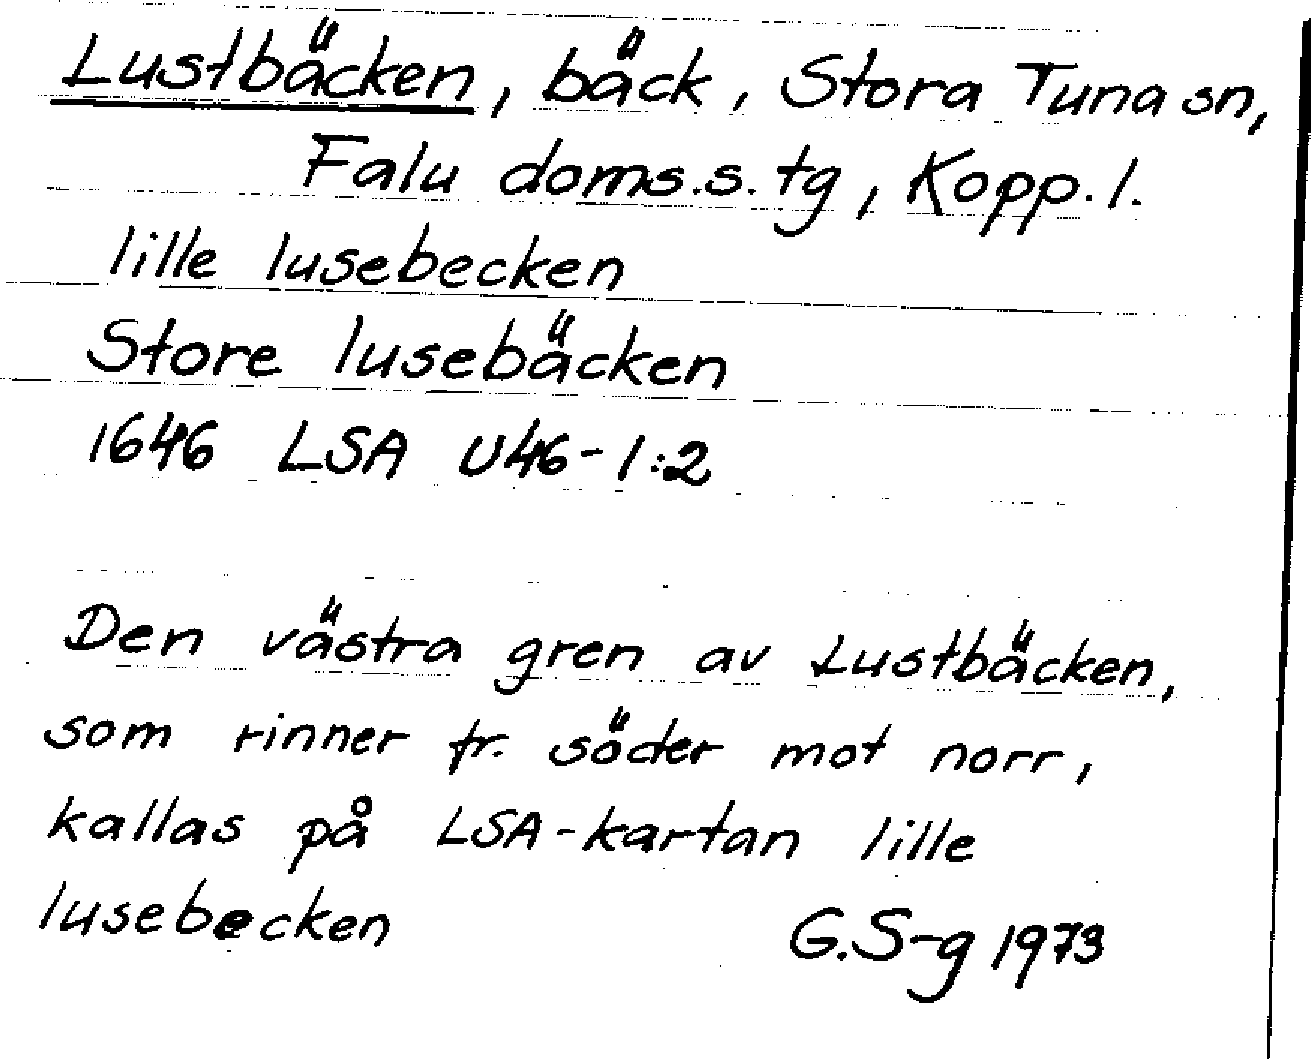 Lustbäcken, bäck, Stora Tuna sn,
Falu doms.s. tg, Kopp. l.
lille lusebecken
Store lusebäcken
1646 LSA U46-1:2
Den västra gren av Lustbäcken,
som rinner fr. söder mot norr,
kallas på LSA-kartan lille
lusebecken G.S-g 1973